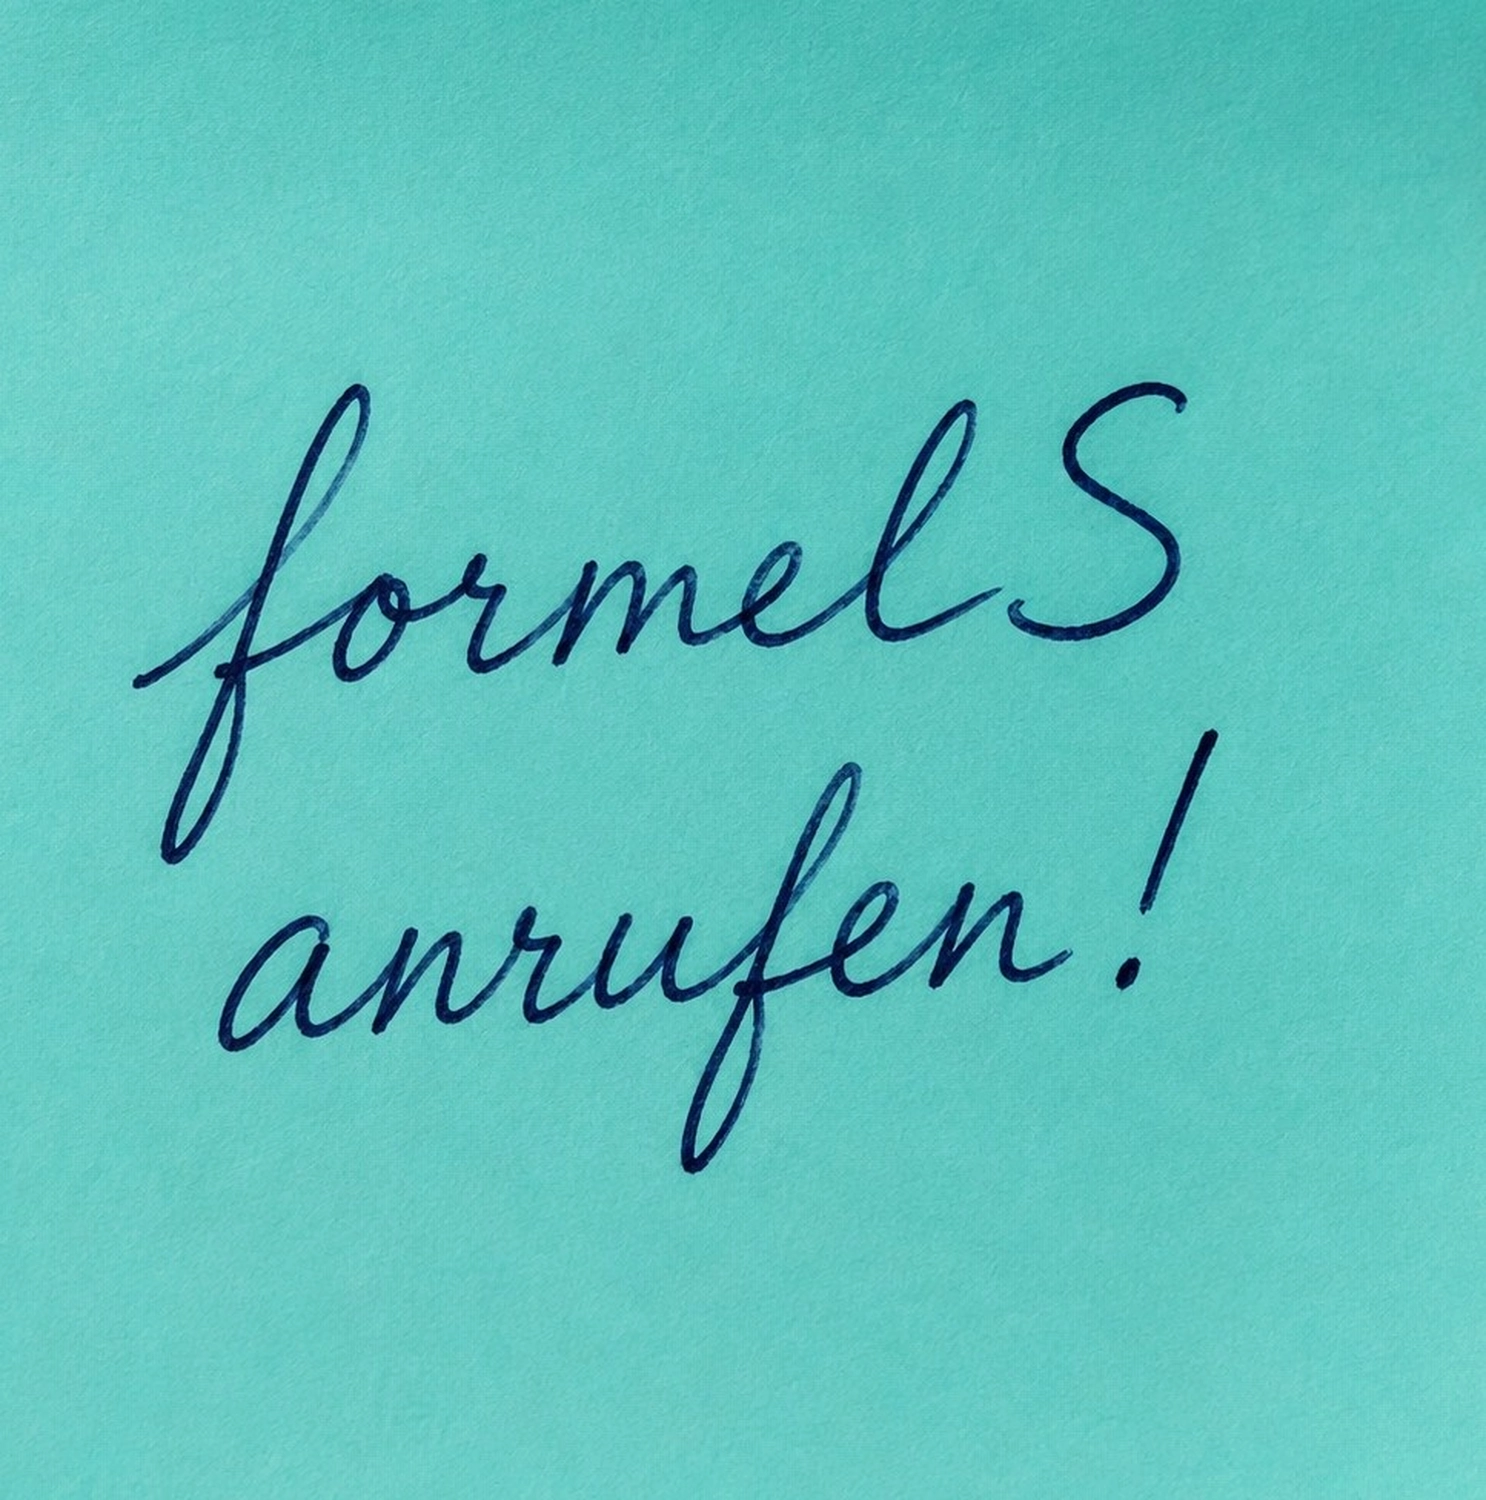 formelS
anrufen!